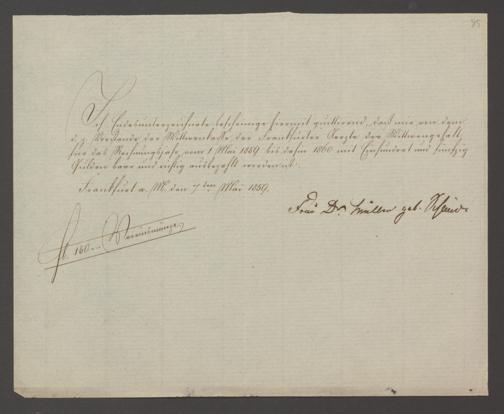 85
Ich Endesunterzeichnete bescheinige hiermit quittirend, daß mir von dem
d. z. Vorstande der Wittwenkasse der Frankfurter Aerzte der Wittwengehalt
für das Rechnungsjahr vom 1 Mai 1859 bis dahin 1860 mit Einhundert und fünfzig
Gulden baar und richtig ausbezahlt worden ist.
Frankfurt a. M. den 7ten Mai 1859.
Frau Dr. Müller geb.
fl. 150 Vereinsmünze